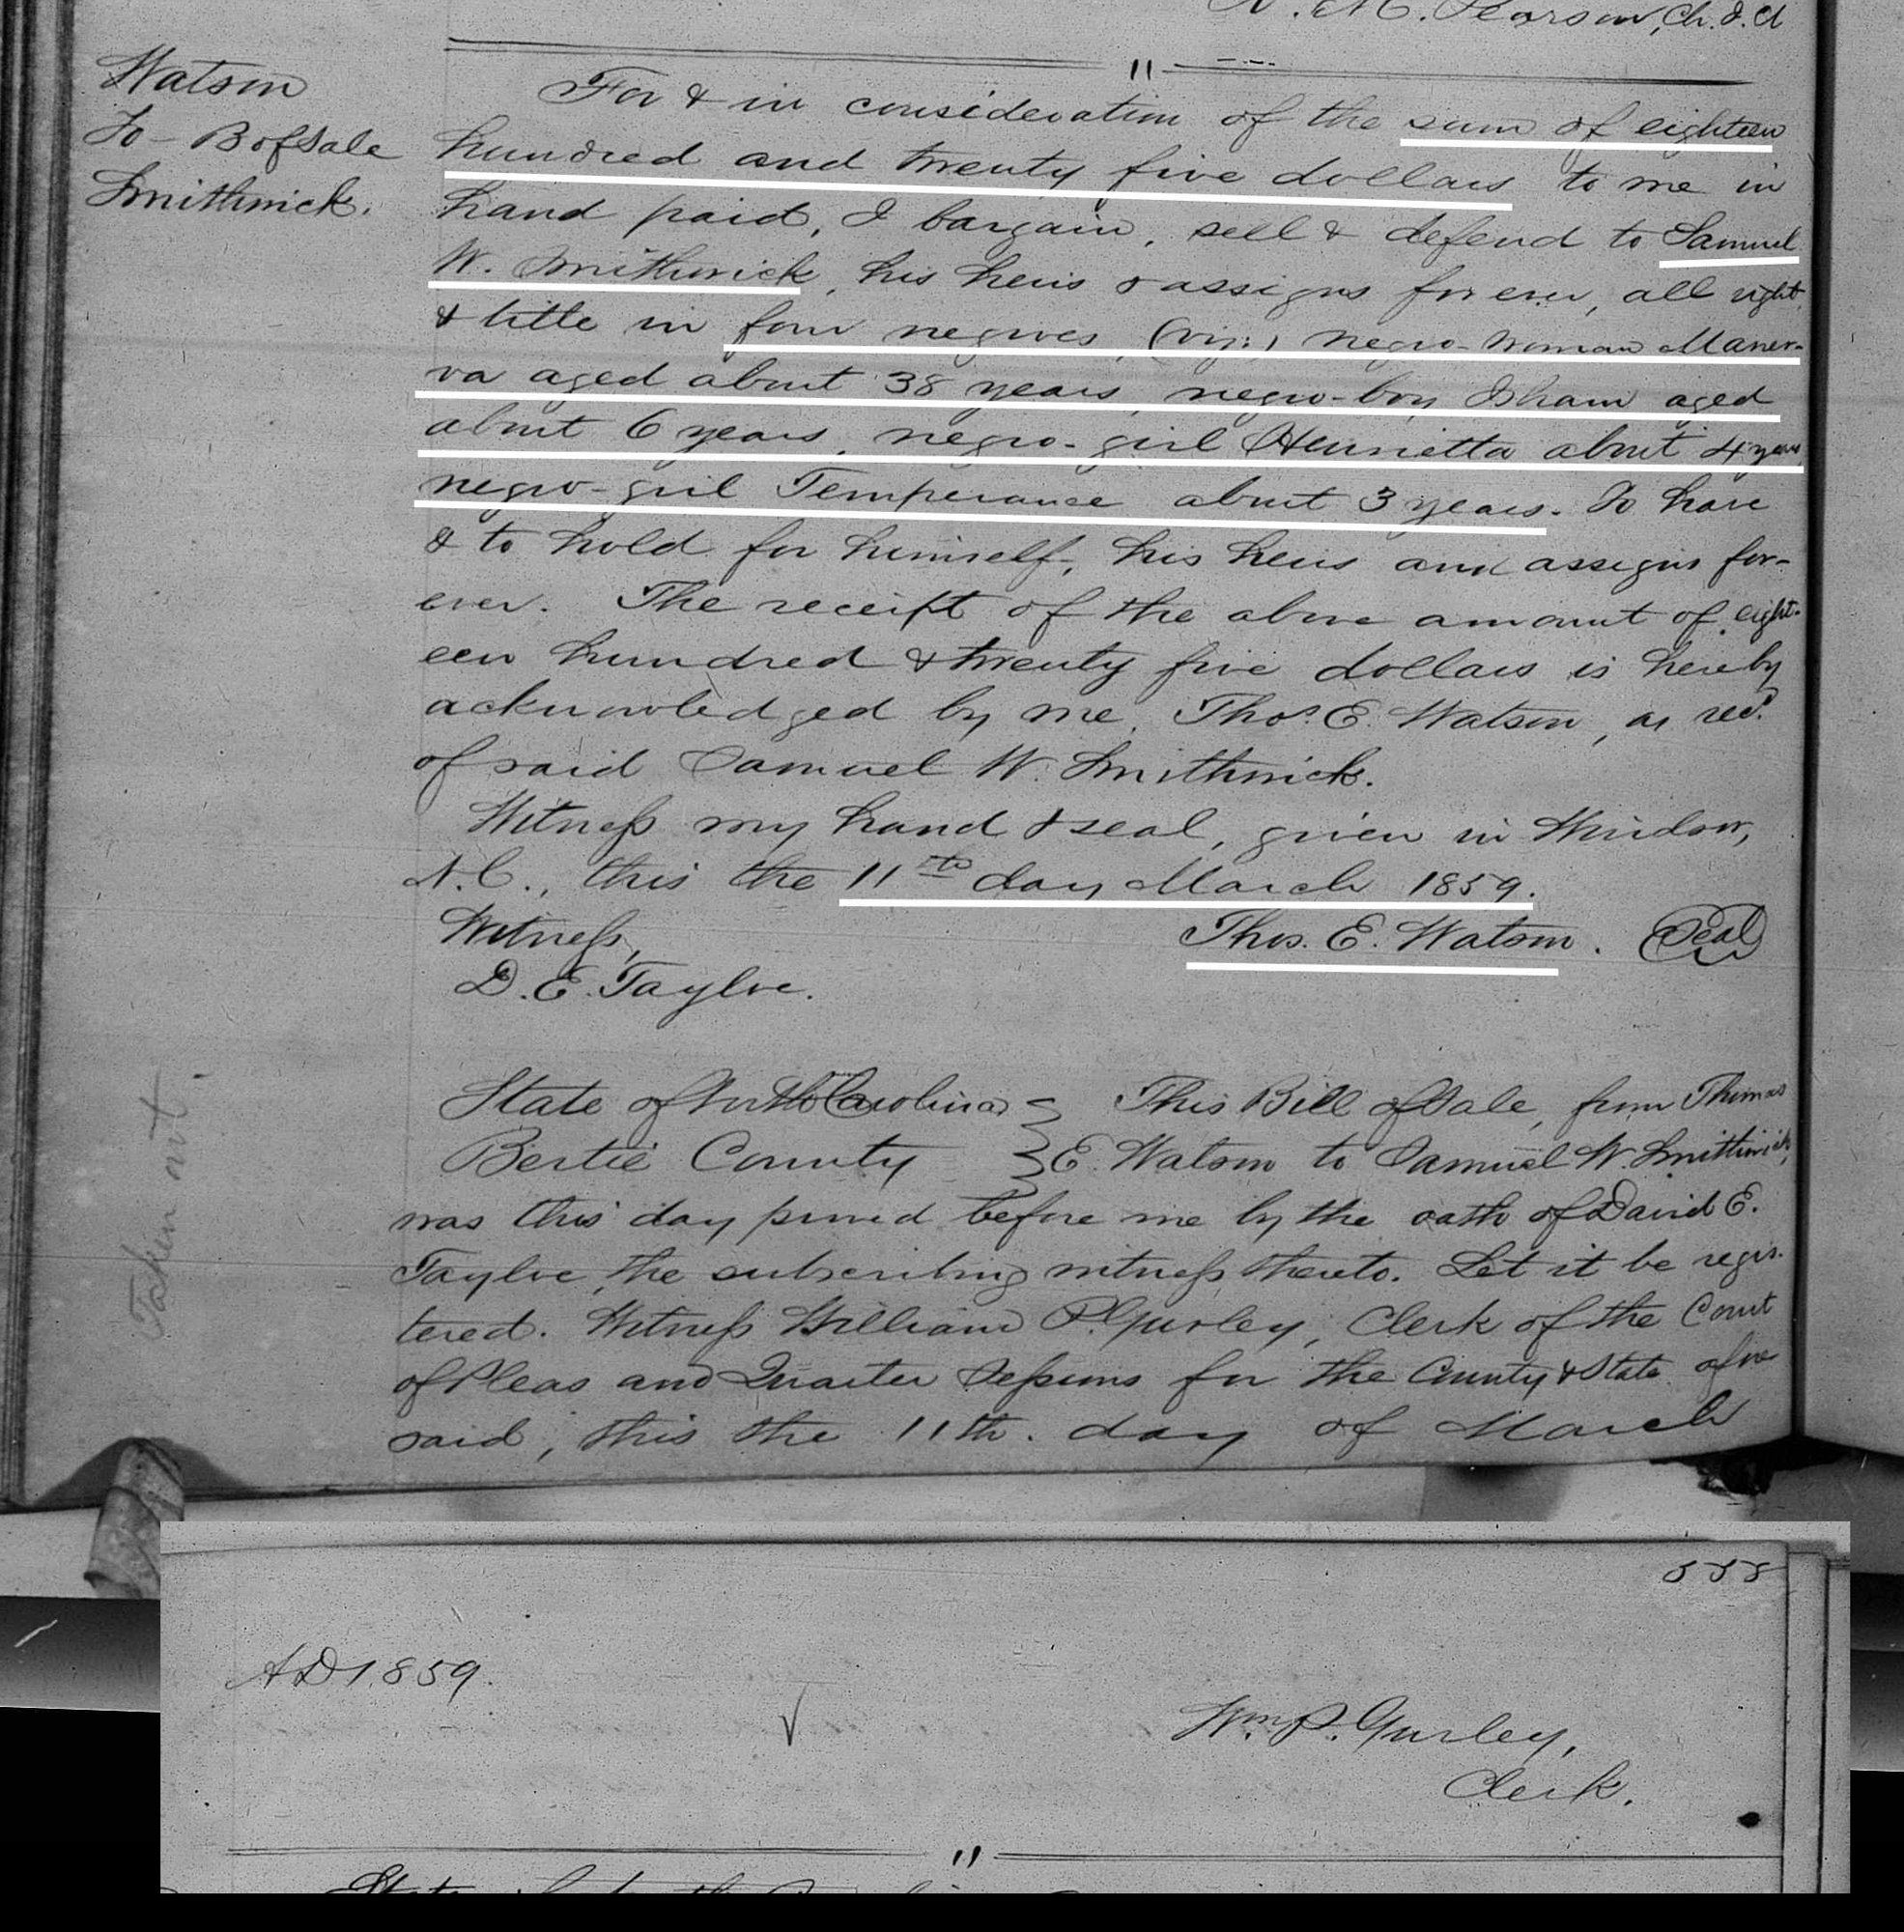 N. M. Pearson, Ch. J. Ct
Watson
To - B of Sale
Smithwick.
For & in consideration of the sum of eighteen
hundred and twenty five dollars to me in
hand paid, I bargain, sell & defend to Samuel
W. Smithwick, his heirs & assigns forever, all right
& title in four negroes, (viz:) negro-woman Maner-
va aged about 38 years, negro-boy Isham aged
about 6 years, negro-girl Henrietta about 4 years,
negro-girl Temperance about 3 years. To have
& to hold for himself, his heirs and assigns for-
ever. The receipt of the above amount of eight-
een hundred & twenty five dollars is hereby
acknowledged by me, Thos. E. Watson, as recd.
of said Samuel W. Smithwick.
Witness my hand & seal, given in Windsor,
N.C., this the 11th day March 1859.
Witness, Thos. E. Watson. Seal
D. E. Tayloe.
Taken out.
State of North Carolina } This Bill of Sale, from Thomas
Bertie County } E. Watson to Samuel W. Smithwick,
was this day proved before me by the oath of David E.
Tayloe, the subscribing witness thereto. Let it be regis-
tered. Witness William P. Gurley, Clerk of the Court
of Pleas and Quarter Sessions for the County & State afore
said, this the 11th. day of March
555
AD 1859.
Wm. P. Gurley,
Clerk.